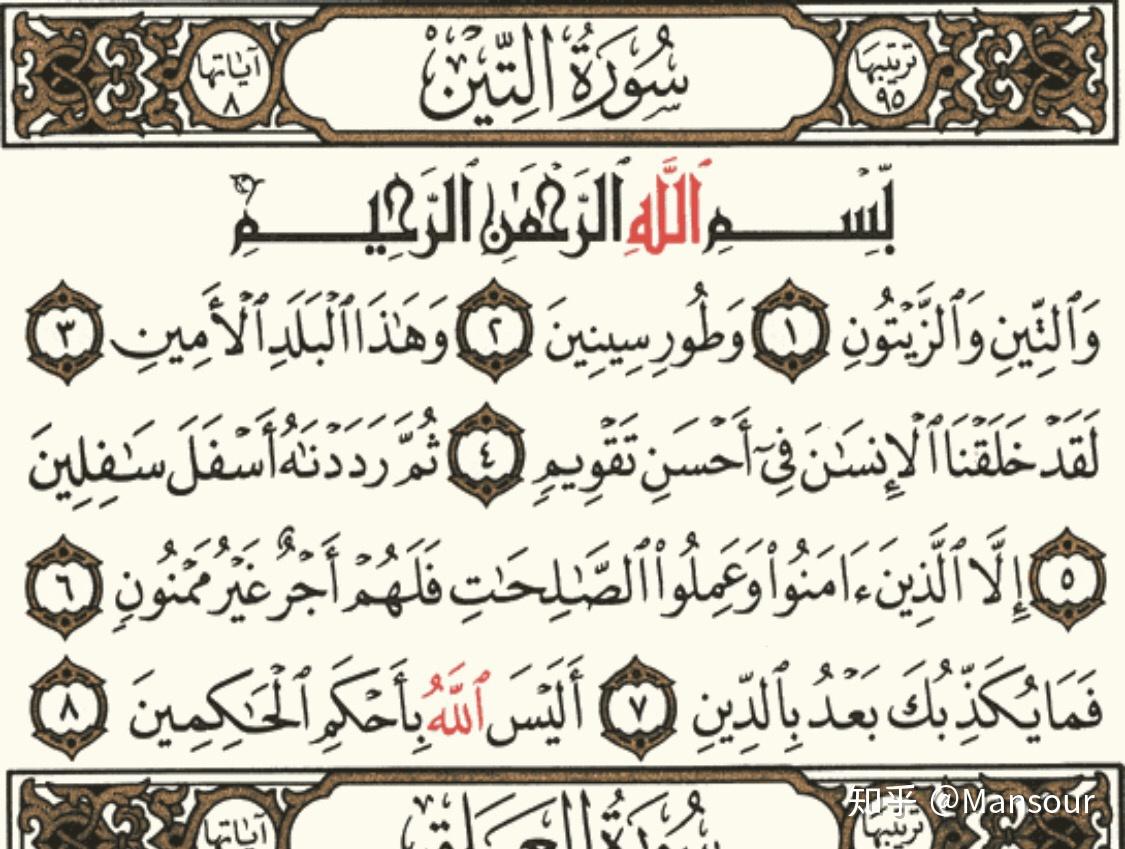 ترتيبها ٩٥ سُورَةُ التِّينِ آيَاتها ٨
بِّسْمِ اللَّهِ الرَّحْمَٰنِ الرَّحِيمِ
وَٱلتِّينِ وَٱلزَّيْتُونِ ١ وَطُورِ سِينِينَ ٢ وَهَٰذَا ٱلْبَلَدِ ٱلْأَمِينِ ٣
لَقَدْ خَلَقْنَا ٱلْإِنسَٰنَ فِىٓ أَحْسَنِ تَقْوِيمٍ ٤ ثُمَّ رَدَدْنَٰهُ أَسْفَلَ سَٰفِلِينَ
٥ إِلَّا ٱلَّذِينَ ءَامَنُوا۟ وَعَمِلُوا۟ ٱلصَّٰلِحَٰتِ فَلَهُمْ أَجْرٌ غَيْرُ مَمْنُونٍ ٦
فَمَا يُكَذِّبُكَ بَعْدُ بِٱلدِّينِ ٧ أَلَيْسَ ٱللَّهُ بِأَحْكَمِ ٱلْحَٰكِمِينَ ٨
ترتيبها سُورَةُ العَلَقِ آيَاتها
知乎 @Mansour